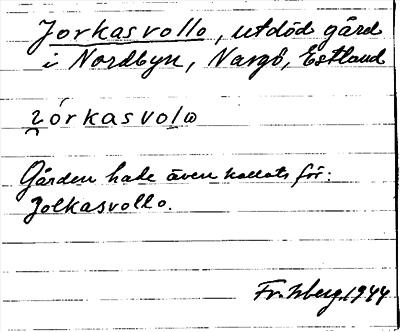 Jorkasvollo, utdöd gård
i Nordbyn, Nargö, Estland
i̯órkasvolω
Gården hade även kallats för:
Jolkasvollo.
Fr. Isberg 1944